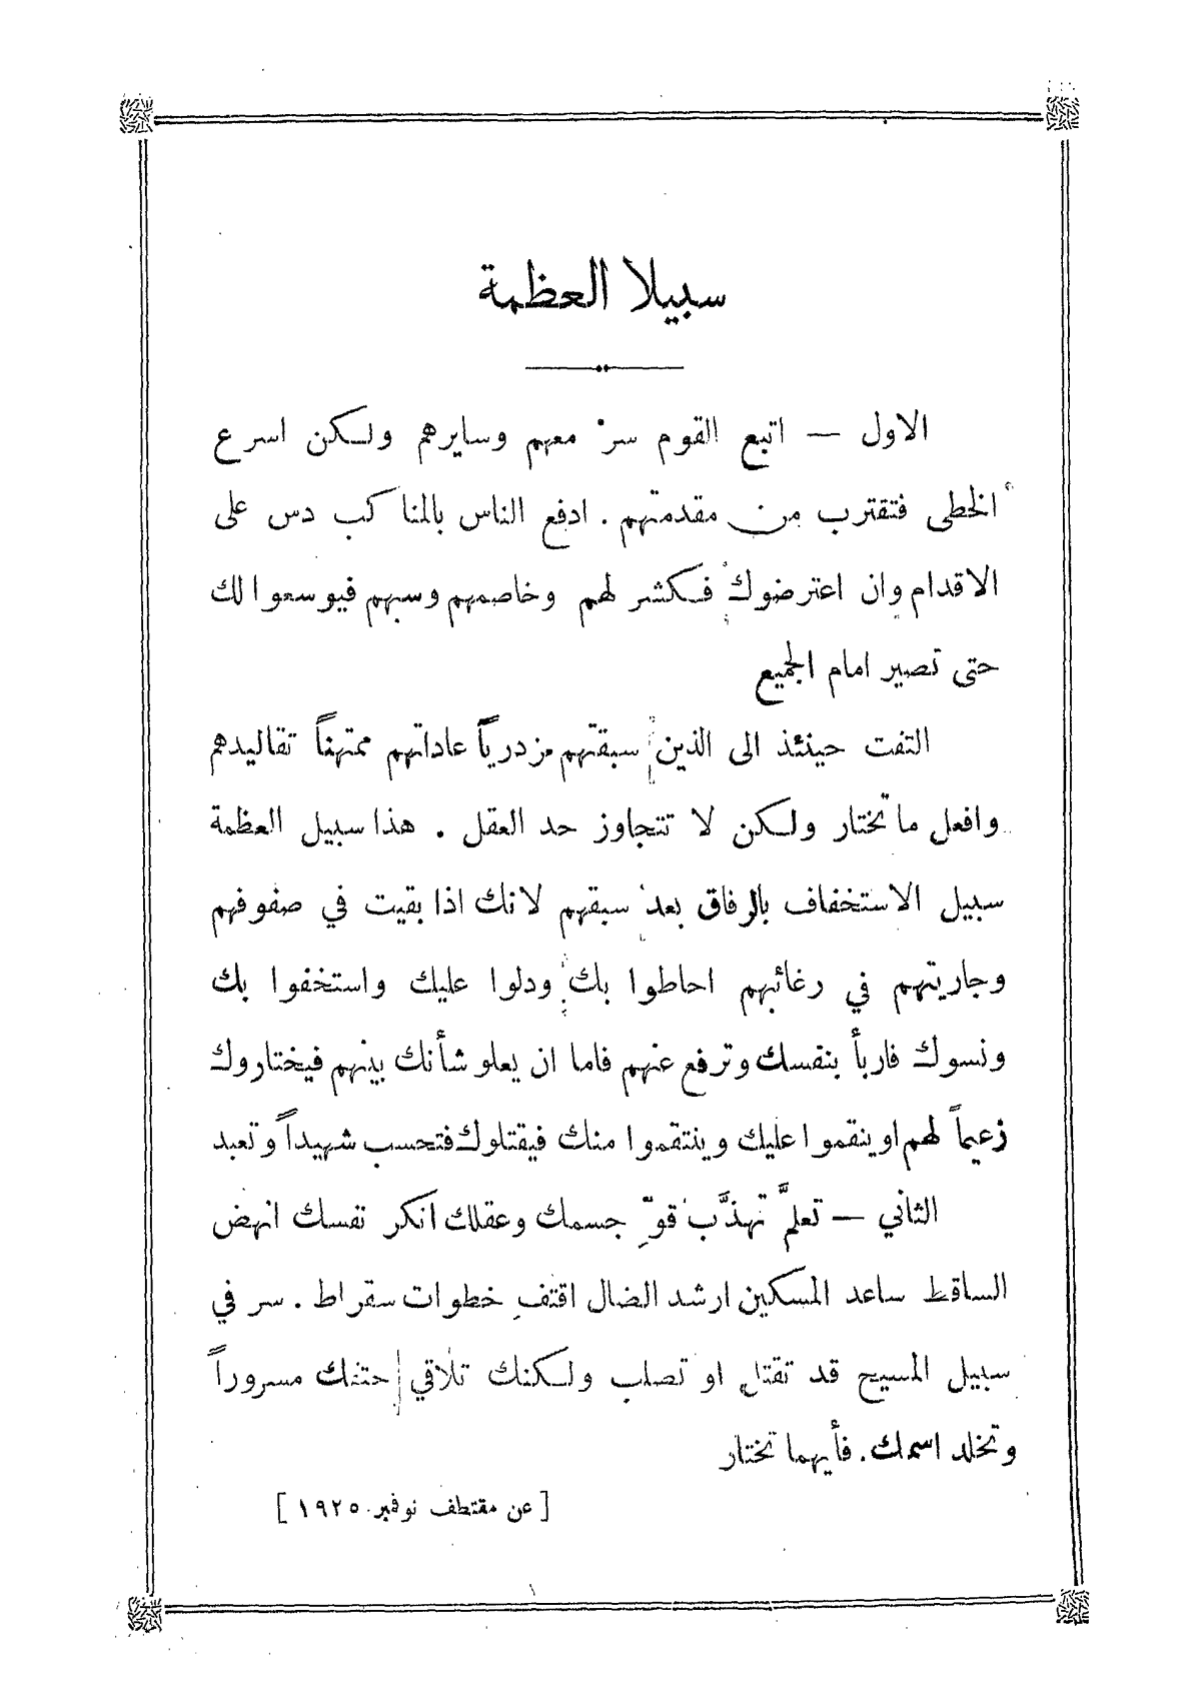 سبيلا العظمة
الاول — اتبع القوم سرْ معهم وسايرهم ولكن اسرع
الخطى فتقترب من مقدمتهم . ادفع الناس بالمناكب دس على
الاقدام وان اعترضوك فكشر لهم وخاصمهم وسبهم فيوسعوا لك
حتى تصير امام الجميع
التفت حينئذ الى الذين سبقتهم مزدرياً عاداتهم ممتهناً تقاليدهم
وافعل ما تختار ولكن لا تتجاوز حد العقل . هذا سبيل العظمة
سبيل الاستخفاف بالرفاق بعد سبقهم لانك اذا بقيت في صفوفهم
وجاريتهم في رغائبهم احاطوا بك ودلوا عليك واستخفوا بك
ونسوك فاربأ بنفسك وترفع عنهم فاما ان يعلو شأنك بينهم فيختاروك
زعيماً لهم او ينقموا عليك وينتقموا منك فيقتلوك فتحسب شهيداً وتعبد
الثاني — تعلَّم تهذَّب قوِّ جسمك وعقلك انكر نفسك انهض
الساقط ساعد المسكين ارشد الضال اقتفِ خطوات سقراط . سر في
سبيل المسيح قد تقتل او تصلب ولكنك تلاقي حتفك مسروراً
وتخلد اسمك . فأيهما تختار
[ عن مقتطف نوفمبر ١٩٢٥ ]